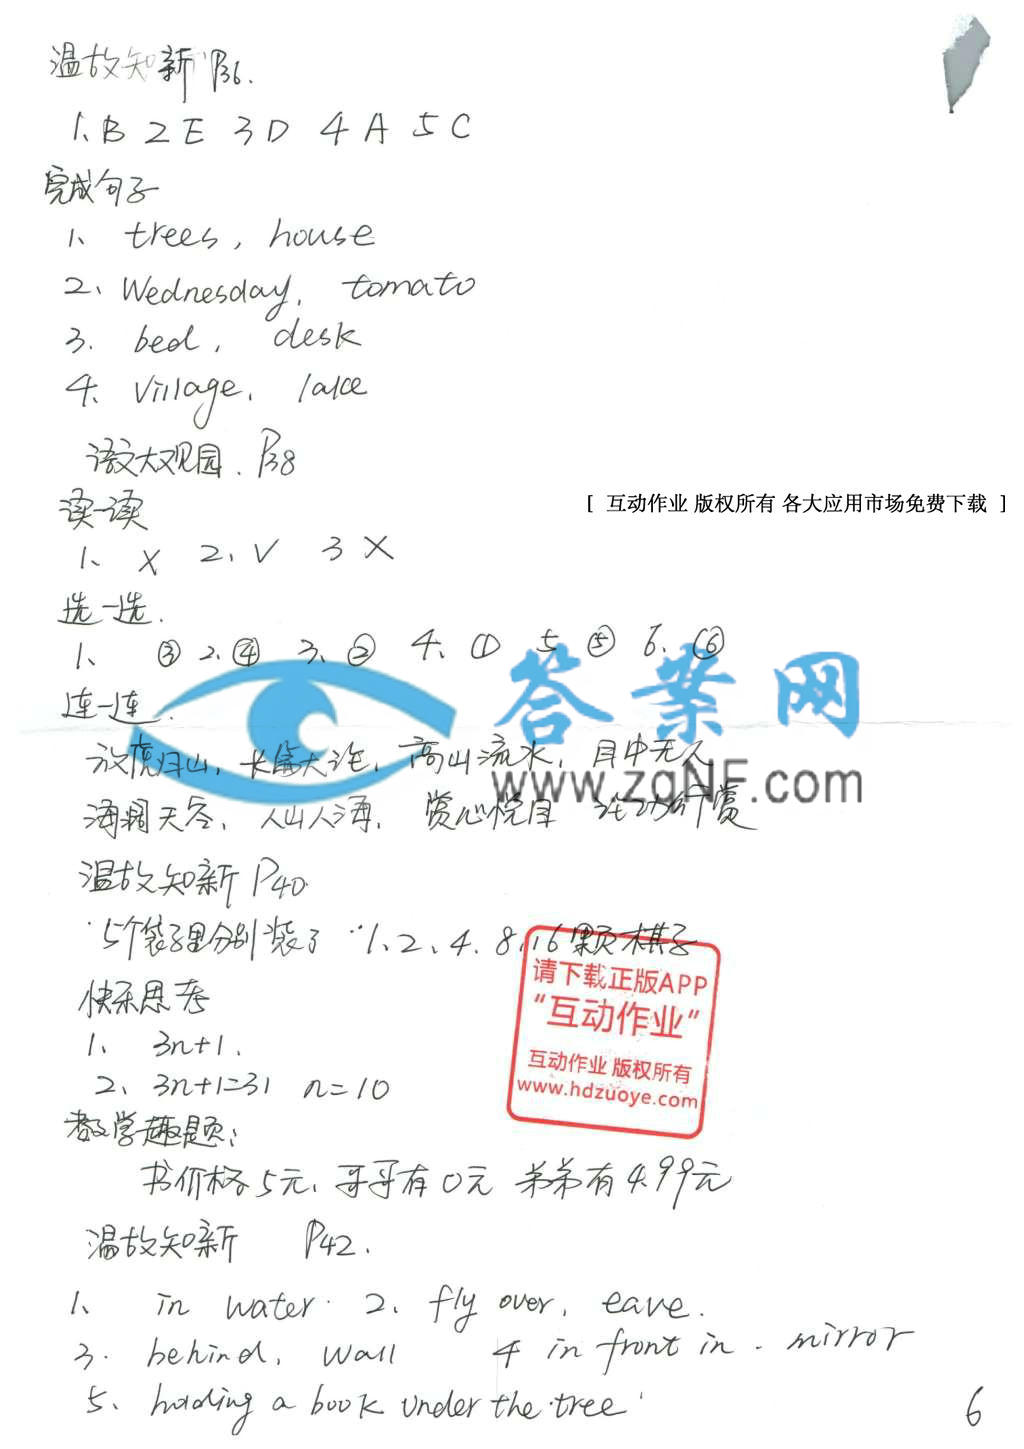 温故知新 P36.
1、B 2 E 3 D 4 A 5 C
完成句子
1、 trees, house
2、Wednesday, tomato
3. bed, desk
4. village, lake
语文大观园. P38
读一读
[ 互动作业 版权所有 各大应用市场免费下载 ]
1、 X 2、V 3 X
选一选.
1、 ③ 2、④ 3、② 4、① 5 ⑤ 6、⑥
答案网
连一连.
放虎归山, 长篇大论, 高山流水, 目中无人
www.zqNF.com
海阔天空, 人山人海, 赏心悦目 论功行赏
温故知新 P40.
5个袋子里分别装了 1、2、4、8、16颗棋子
请下载正版APP
快乐思考
“互动作业”
1、 3n+1.
互动作业 版权所有
2、 3n+1=31 n=10
www.hdzuoye.com
数学趣题:
书价格5元, 哥哥有0元 弟弟有4.99元
温故知新 P42.
1、 in water. 2、 fly over, eave.
3. behind, wall 4 in front in . mirror
5、 holding a book under the tree
6